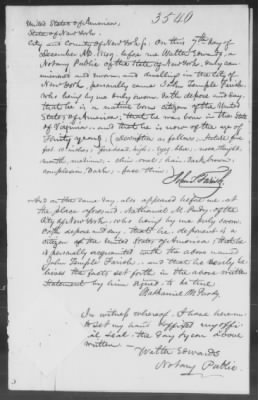 3540
United States of America,
State of New York.
City and County of New York ss. On this 7th day of
December AD. before me Walter Edwards, a
Notary Public of the State of New York, duly com-
missioned and sworn, and dwelling in the City of
New York, personally came John Temple Farish,
who being by me duly sworn, doth depose and say,
that he is a native born citizen of the United
States of America; that he was born in the State
of Virginia; and that he is now of the age of
Thirty years. Description as follows, stature, five
feet. 10 inches; forehead, high; eyes, blue; nose, straight;
mouth, medium; chin, oval; hair, dark brown;
complexion, dark; face,
John T. Farish
And on the same day also appeared before me, at
the place aforesaid, Nathaniel M. Purdy, of the
City of New York, who being by me duly sworn,
doth depose and say, that he, deponent is a
citizen of the United States of America; that he
is personally acquainted with the above named
John Temple Farish; and that he verily be-
lieves the facts set forth in the above written
statement by him signed, to be true
Nathaniel M. Purdy
In witness whereof, I have hereun-
to set my hand affixed my offi-
cial seal, the day & year above
written.
Walter Edwards
Notary Public.